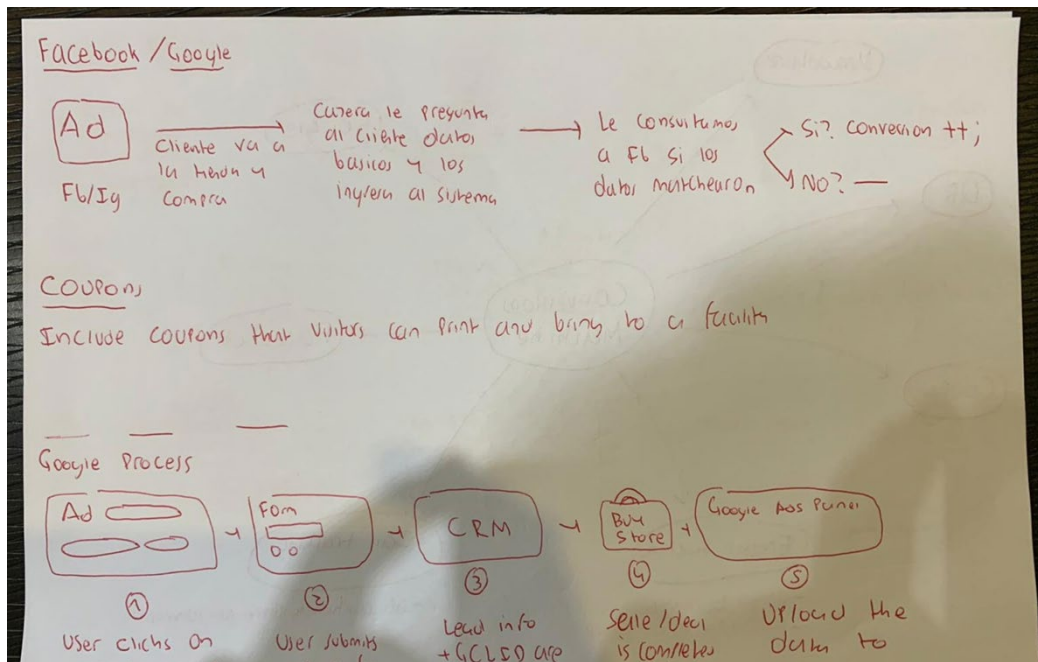 Facebook / Google
Ad
Fb/Ig
Cliente va a
la tienda y
compra
Cajera le pregunta
al cliente datos
basicos y los
ingresa al sistema
Le consultamos
a Fb si los
datos matchearon
Si? Conversion ++;
No? —
Coupons
Include coupons that visitors can print and bring to a facility
Google Process
Ad
Form
CRM
Buy
Store
Google Ads Panel
1
2
3
4
5
User clicks on
User submits
Lead info
+ GCLID are
Sale/deal
is completed
Upload the
data to